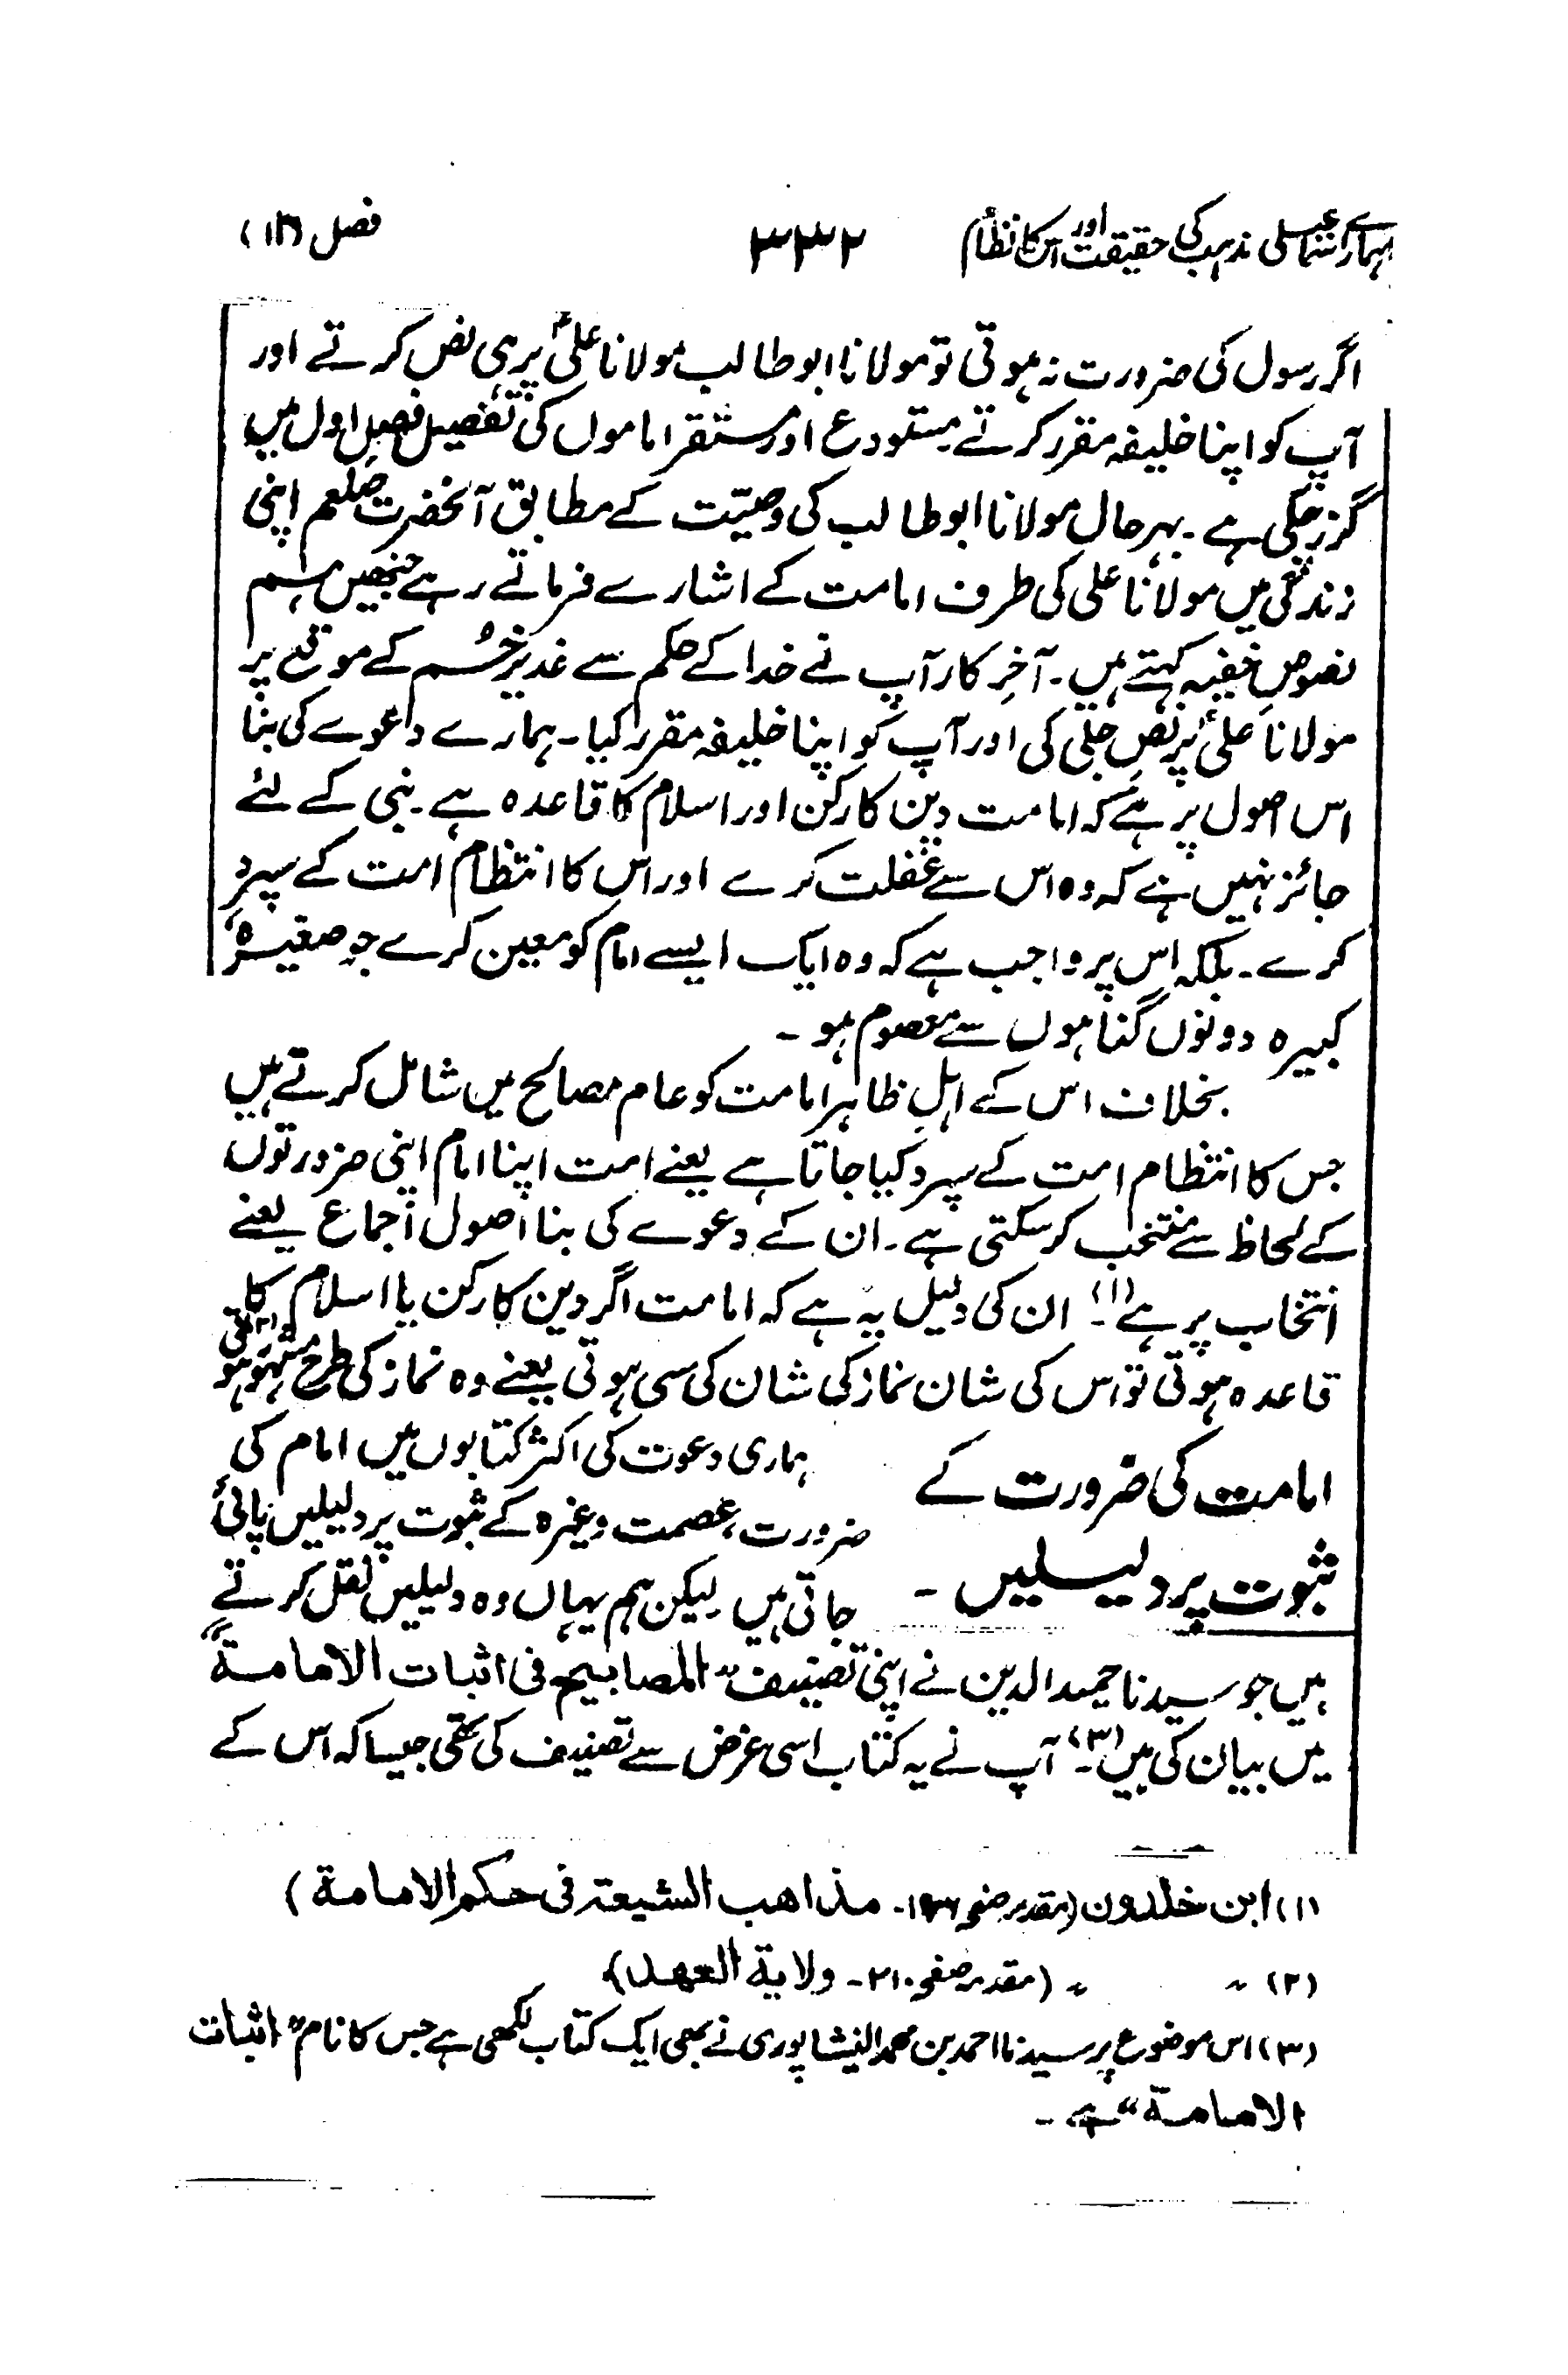 ہمارے اسماعیلی مذہب کی حقیقت اور اس کا نظام ۳۳۲ فصل (۱۲)
اگر رسول کی ضرورت نہ ہوتی تو مولانا ابو طالب مولانا علیؑ پر ہی نص کرتے اور
آپ کو اپنا خلیفہ مقرر کرتے مستودع اور مستقر اماموں کی تفصیل فصل اول میں
گزر چکی ہے ۔ بہر حال مولانا ابو طالب کی وصیّت کے مطابق آنحضرت صلعم اپنی
زندگی میں مولانا علی کی طرف امامت کے اشارے فرماتے رہے جنھیں ہم
نصوصِ خفیہ کہتے ہیں ۔ آخرِ کار آپ نے خدا کے حکم سے غدیر خُم کے موقع پر
مولانا علیؑ پر نصِ جلی کی اور آپ کو اپنا خلیفہ مقرر کیا ۔ ہمارے دعوے کی بنا
اس اصول پر ہے کہ امامت دین کا رکن اور اسلام کا قاعدہ ہے ۔ نبی کے لئے
جائز نہیں ہے کہ وہ اس سے غفلت کرے اور اس کا انتظام امت کے سپرد
کرے ۔ بلکہ اس پر واجب ہے کہ وہ ایک ایسے امام کو معین کرے جو صغیرہ،
کبیرہ دونوں گناہوں سے معصوم ہو ۔
بخلاف اس کے اہلِ ظاہر امامت کو عام مصالح میں شامل کرتے ہیں
جس کا انتظام امت کے سپرد کیا جاتا ہے یعنے امت اپنا امام اپنی ضرورتوں
کے لحاظ سے منتخب کر سکتی ہے ۔ ان کے دعوے کی بنا اصول اجماع یعنے
انتخاب پر ہے (۱)۔ ان کی دلیل یہ ہے کہ امامت اگر دین کا رکن یا اسلام کا
قاعدہ ہوتی تو اس کی شان نماز کی شان کی سی ہوتی یعنے وہ نماز کی طرح مشہور ہوتی (۲)
امامت کی ضرورت کے
ثبوت پر دلیلیں ۔
ہماری دعوت کی اکثر کتابوں میں امام کی
ضرورت، عصمت وغیرہ کے ثبوت پر دلیلیں پائی
جاتی ہیں لیکن ہم یہاں وہ دلیلیں نقل کرتے
ہیں جو سیدنا حمید الدین نے اپنی تصنیف "المصابیح فی اثبات الامامة"
میں بیان کی ہیں (۳)۔ آپ نے یہ کتاب اسی غرض سے تصنیف کی تھی جیسا کہ اس کے
(۱) ابن خلدون (مقدمہ صفحہ ۔ مذاهب الشیعة فی حکم الامامة)
(۲) 〃 〃 (مقدمہ صفحہ ۲۱۰ ۔ ولایة العهد)
(۳) اس موضوع پر سیدنا احمد بن محمد النیشاپوری نے بھی ایک کتاب لکھی ہے جس کا نام "اثبات
الامامة" ہے ۔